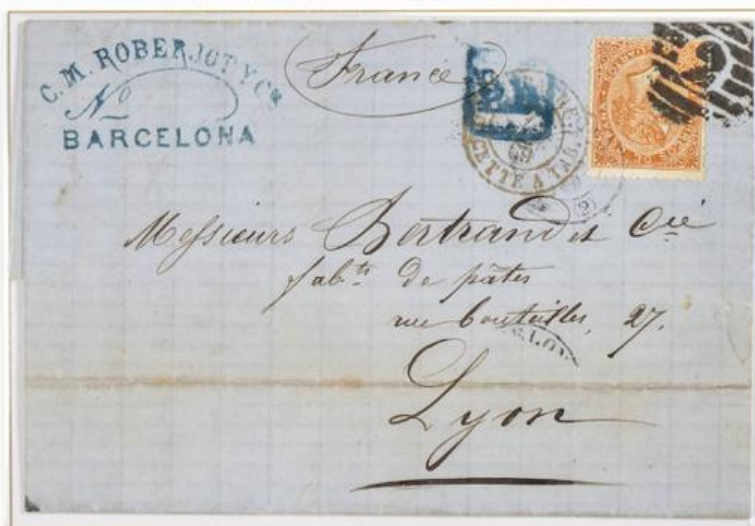 C. M. ROBERJOT Y Cª
Nº
BARCELONA
France
P.D.
69
CETTE A TAR.
(2)
Messieurs Bertrand et Cie
fabts de pâtes
rue bouteilles, 27.
Lyon